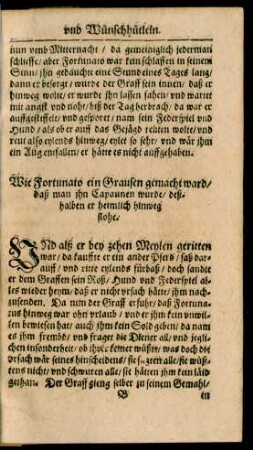 vnd Wünschhütlein.
nun vmb Mitternacht / da gemeiniglich jederman
schlieffe / aber Fortunato war kein schlaffen in seinem
Sinn / jhn gedauchte eine Stund eines Tages lang /
dann er besorgt / wurde der Graff sein innen / daß er
hinweg wolt / er wurde jhn lassen fahen / vnd wartet
mit angst vnd noht / biß der Tag herbrach / da war er
auffgestiffelt / vnd gesport / nam sein Federspiel vnd
Hund / als ob er auff das Gejägd reuten wolte / vnd
reut also eylends hinweg / eylet so sehr / vnd wär jhm
ein Aug entfallen / er hätte es nicht auffgehaben.
Wie Fortunato ein Grausen gemacht ward /
daß man jhn Capaunen wurde / deß-
halben er heimlich hinweg
flohe.
VNd alß er bey zehen Meylen geritten
war / da kauffte er ein ander Pferd / saß dar-
auff / vnd ritte eylends fürbaß / doch sandte
er dem Graffen sein Roß / Hund vnd Federspiel al-
les wieder heym / daß er nicht vrsach hätte / jhm nach-
zusenden. Da nun der Graff erfuhr / daß Fortuna-
tus hinweg war ohn vrlaub / vnd er jhm kein vnwil-
ken bewiesen hat / auch jhm kein Sold geben / da nam
es jhm frembd / vnd fraget die Diener all / vnd jegli-
chen insonderheit / ob jhrer keiner wüßte / was doch die
vrsach wär seines hinscheidens / sie sagten alle / sie wüß-
tens nicht / vnd schwuren alle / sie hätten jhm kein läid
gethan. Der Graff gieng selber zu seinem Gemahl /
B
in